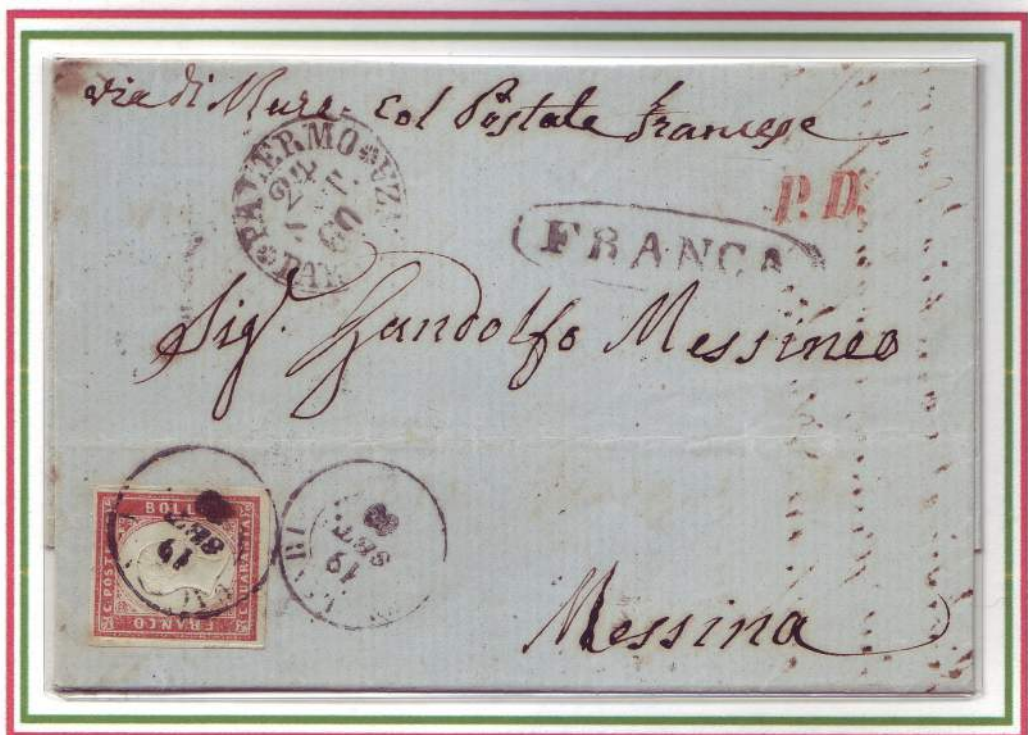 via di Mare col Postale francese
PALERMO
24
60
P.D.
FRANCA
Sig. Gandolfo Messineo
BOLLO
C. POSTE
C. QUARANTA
FRANCO
19
SET
60
19
SET
60
Messina